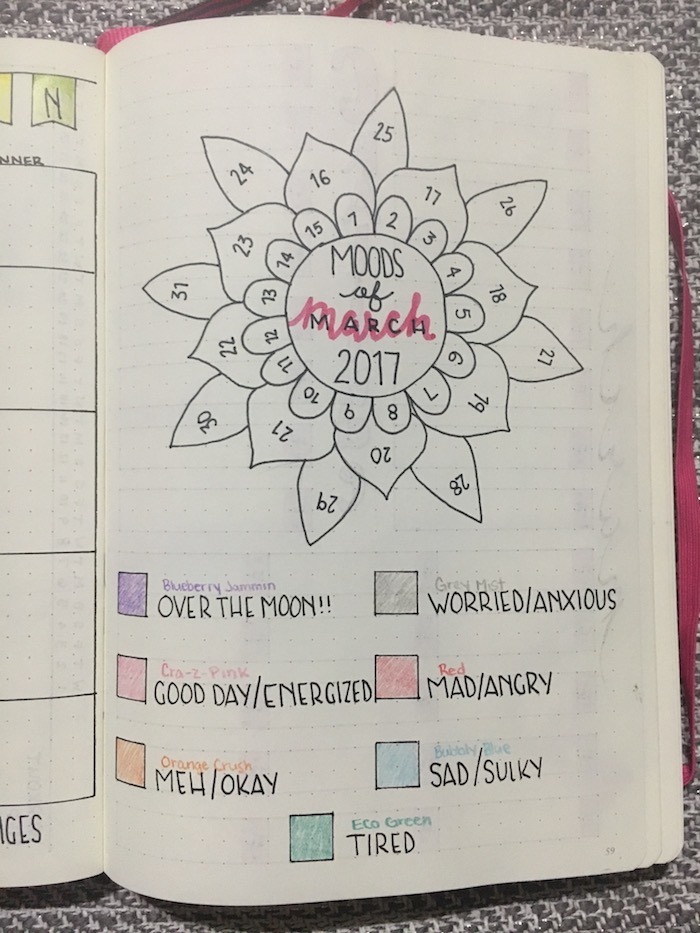 N
NNER
GES
25
24
16
17
26
15
1
2
3
23
14
4
MOODS
of
march
MARCH
2017
31
13
5
18
22
12
11
6
27
10
9
8
7
19
30
21
20
28
29
Blueberry Jammin
OVER THE MOON!!
Grey Mist
WORRIED/ANXIOUS
Cra-z-Pink
GOOD DAY/ENERGIZED
Red
MAD/ANGRY
Orange Crush
MEH/OKAY
Bubbly Blue
SAD/SULKY
Eco Green
TIRED
59